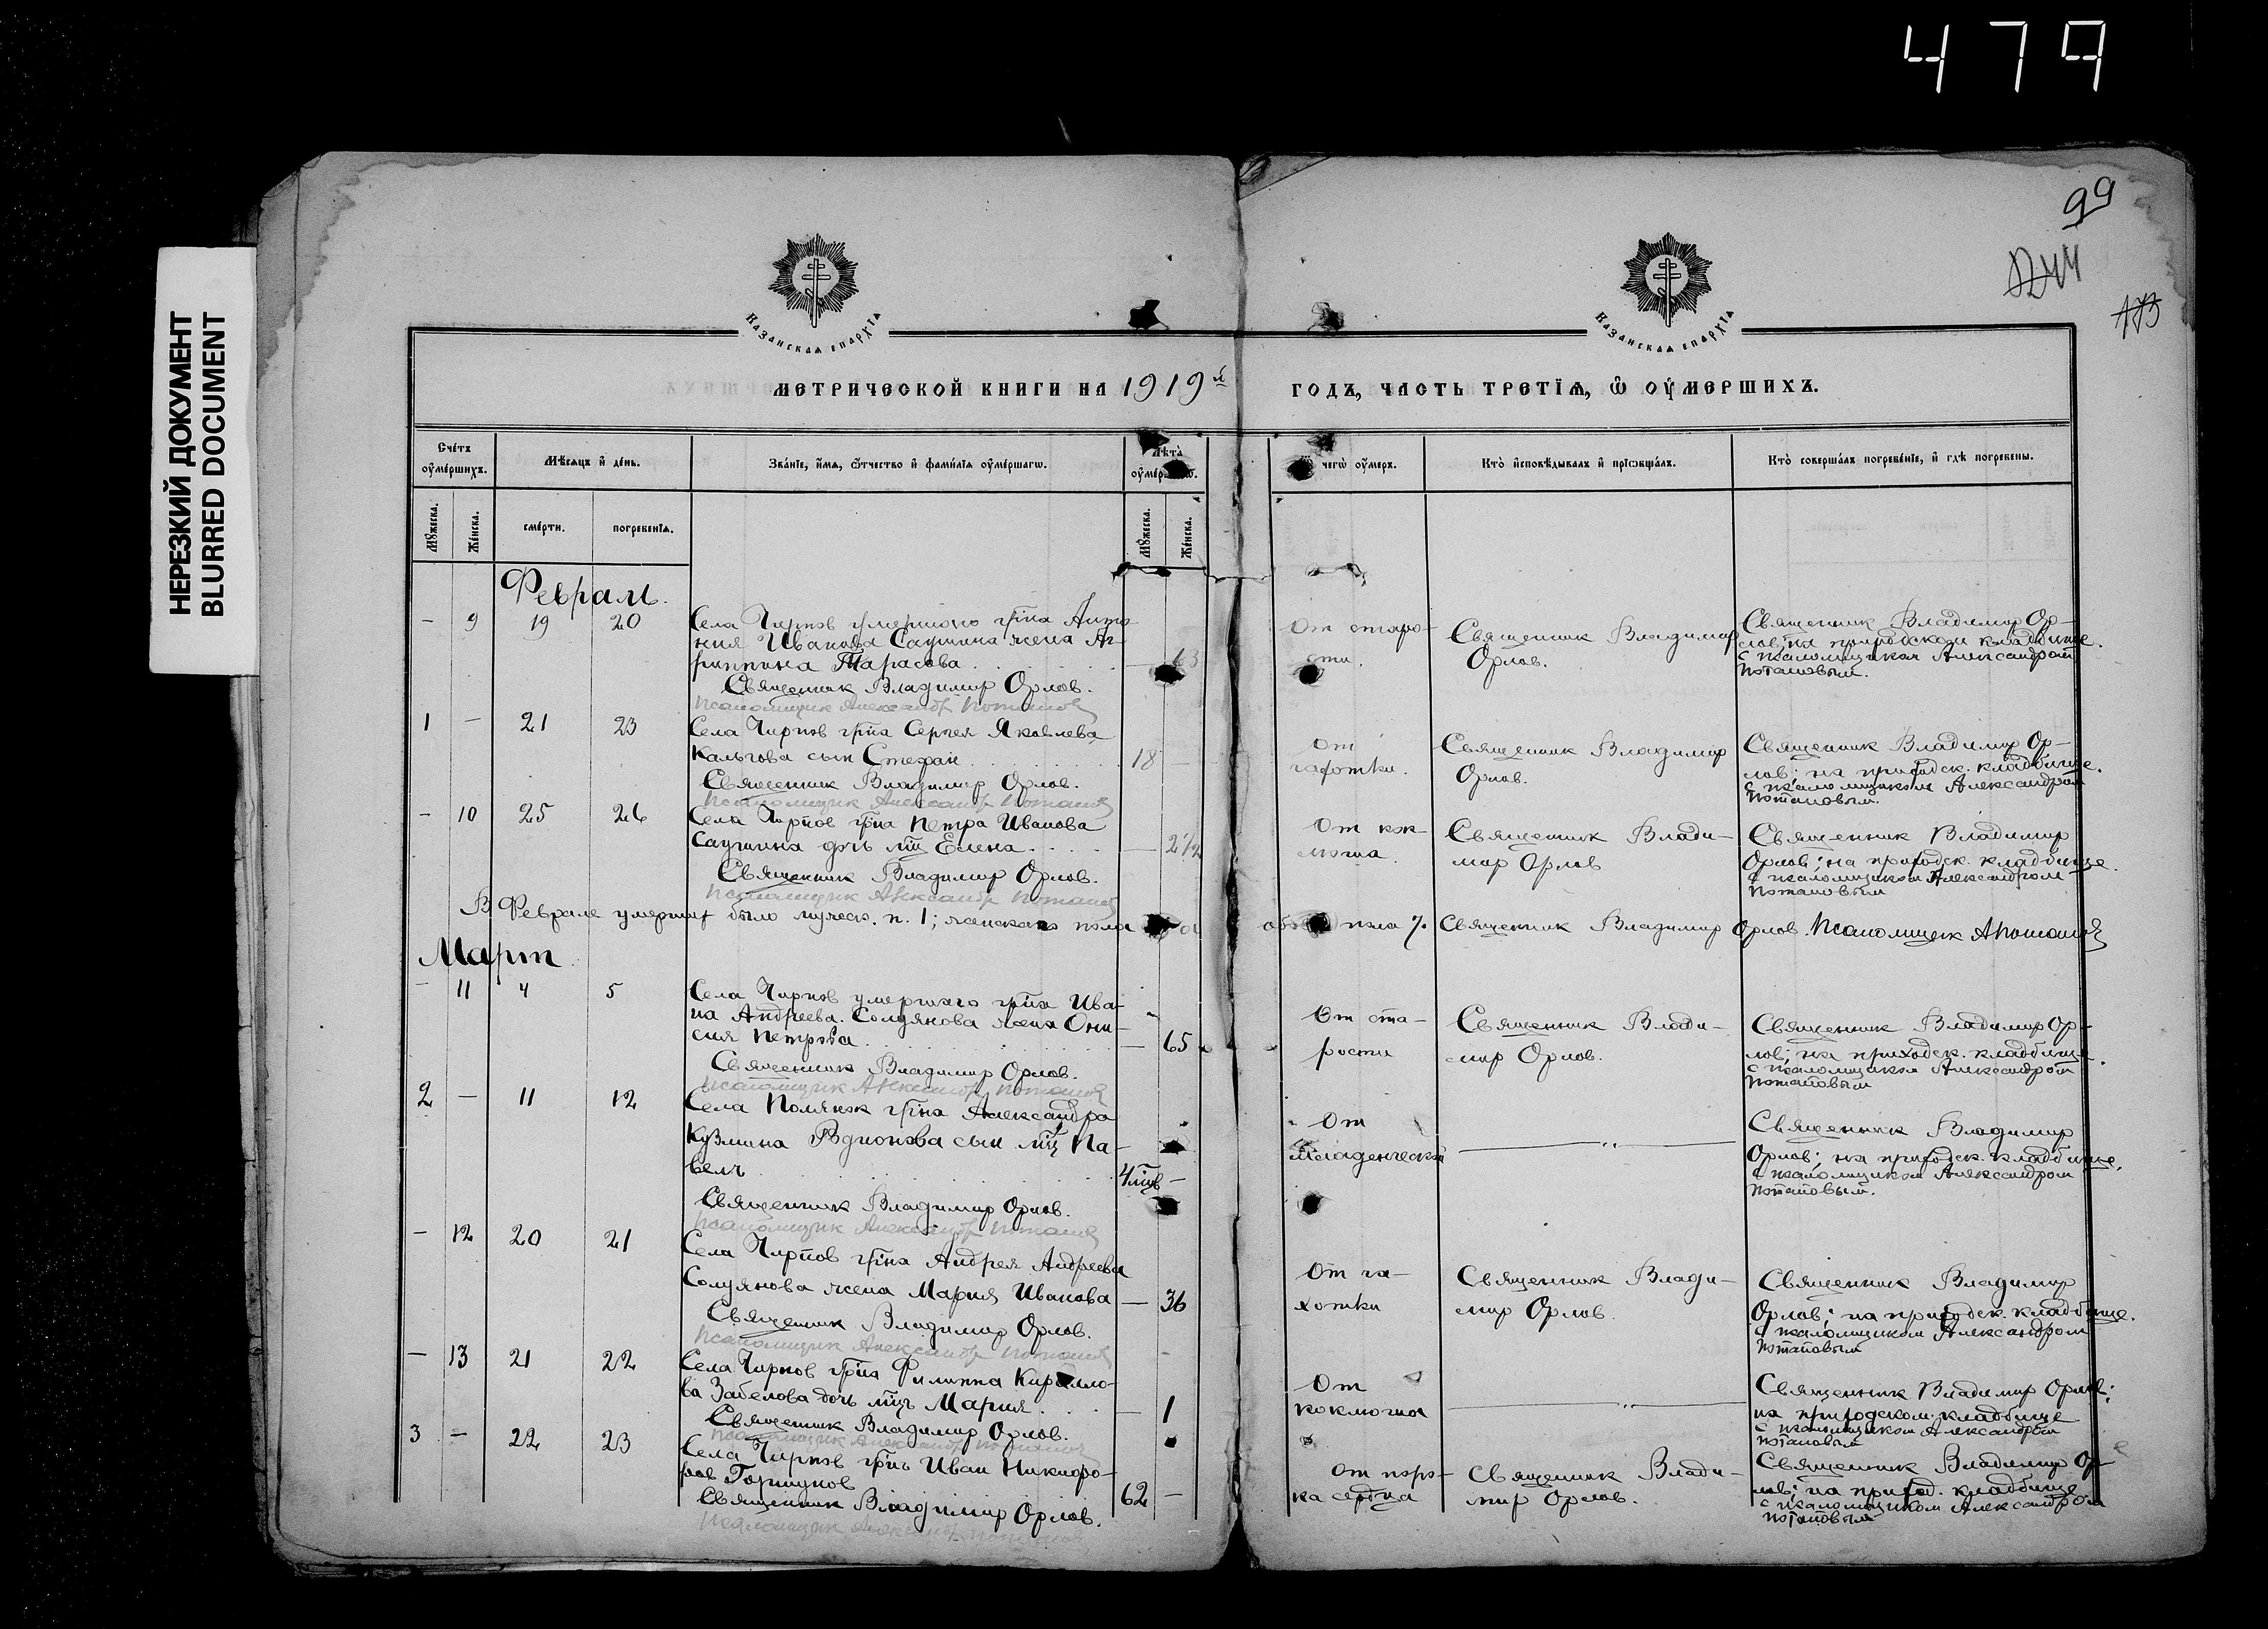 479
НЕРЕЗКИЙ ДОКУМЕНТ
BLURRED DOCUMENT
99
КАЗАНСКАѦ ЕПАРХІѦ
КАЗАНСКАѦ ЕПАРХІѦ
МЕТРИЧЕСКОЙ КНИГИ НА 1919й ГОДЪ, ЧАСТЬ ТРЕТІѦ, Ѽ ОУМЕРШИХЪ.
Счетъ оумершихъ.
Мѣсяцъ и день.
Званіе, имя, ѿчество и фамилія оумершагѡ.
Лѣта
чегѡ оумеръ.
Кто исповѣдывалъ и пріобщалъ.
Кто совершалъ погребеніе, и гдѣ погребены.
Мужеска.
Женска.
смерти.
погребенія.
Мужеска.
Женска.
Февраль.
- 9 19 20
Села Чирпов умершого гр-на Анто-
ния Иванова Саушина жена Аг-
риппина Тарасова
Священник Владимир Орлов.
Псаломщик Александр Потапов
От старо-
сти.
Священник Владимир
Орлов.
Священник Владимир Ор-
лов; на приходском кладбище.
с псаломщиком Александром
Потаповым.
1 - 21 23
Села Чирпов гр-на Сергея Яковлева
сын Стефан 18 -
Священник Владимир Орлов.
Псаломщик Александр Потапов
От
чахотки.
Священник Владимир
Орлов.
Священник Владимир Ор-
лов; на приходск. кладбище.
с псаломщиком Александром
Потаповым.
- 10 25 26
Села Чирпов гр-на Петра Иванова
Саушина дочь мц Елена - 2½
Священник Владимир Орлов.
Псаломщик Александр Потапов
От кок-
люша.
Священник Влади-
мир Орлов
Священник Владимир
Орлов; на приходск. кладбище.
с псаломщиком Александром
Потаповым
В Феврале умерших было мужеск. п. 1; женскаго пола
пола Священник Владимир Орлов. Псаломщик А Потапов
Март
- 11 4 5
Села Чирпов умершаго гр-на Ива-
на Андреева Солуянова жена Они-
сия Петрова - 65
Священник Владимир Орлов.
Псаломщик Александр Потапов
От ста-
рости
Священник Влади-
мир Орлов.
Священник Владимир Ор-
лов; на приходск. кладбище.
с псаломщиком Александром
Потаповым
2 - 11 12
Села Полянок гр-на Александра
Кузмина сын мц Па-
велъ 4 мцв -
Священник Владимир Орлов.
Псаломщик Александр Потапов
От
младенческой
- " -
Священник Владимир
Орлов; на приходск. кладбище.
с псаломщиком Александром
Потаповым.
- 12 20 21
Села Чирпов гр-на Андрея Андреева
Солуянова жена Мария Иванова - 36
Священник Владимир Орлов.
Псаломщик Александр Потапов
От ча-
хотки
Священник Влади-
мир Орлов.
Священник Владимир
Орлов; на приходск. кладбище.
с псаломщиком Александром
Потаповым
- 13 21 22
Села Чирпов гр-на Филиппа Кирилло-
ва Забелова дочь мцъ Мария - 1
Священник Владимир Орлов.
Псаломщик Александр Потапов
От
коклюша
- " -
Священник Владимир Орлов;
на приходском кладбище
с псаломщиком Александром
Потаповым
3 - 22 23
Села Чирпов гр-нъ Иван Никифо-
ров Горшунов 62 -
Священник Владимир Орлов.
Псаломщик Александр Потапов
От поро-
ка сердца
Священник Влади-
мир Орлов.
Священник Владимир Ор-
лов; на приход. кладбище
с псаломщиком Александром
Потаповым